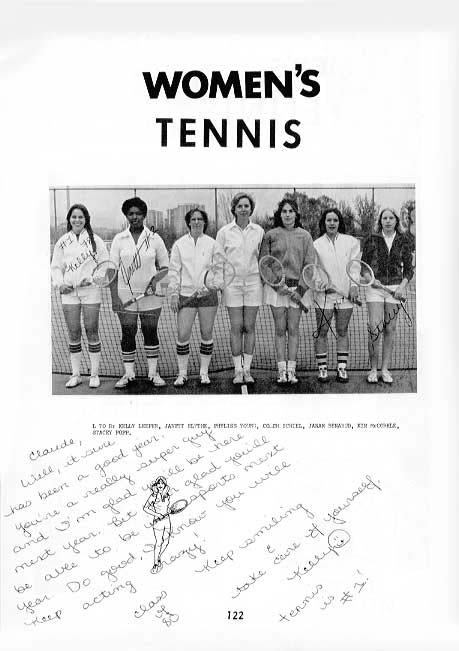 WOMEN'S
TENNIS
#1
Kelly
Janet
Kim
Stacey
L TO R: KELLY LEEPER, JANETT BLYTHE, PHYLLIS YOUNT, COLEN SCHIEL, JANAN BENABUD, KIM McCORKLE,
STACEY POPP.
Claude,
Well, it sure
has been a good year.
You're a really super guy
and I'm glad you'll be here
next year. But glad you'll
be able to be sports next
year. Do good, I know you will
Keep acting crazy!
Keep smiling
&
take care of yourself.
Kelly
tennis
is #1!
Class
of
80
122